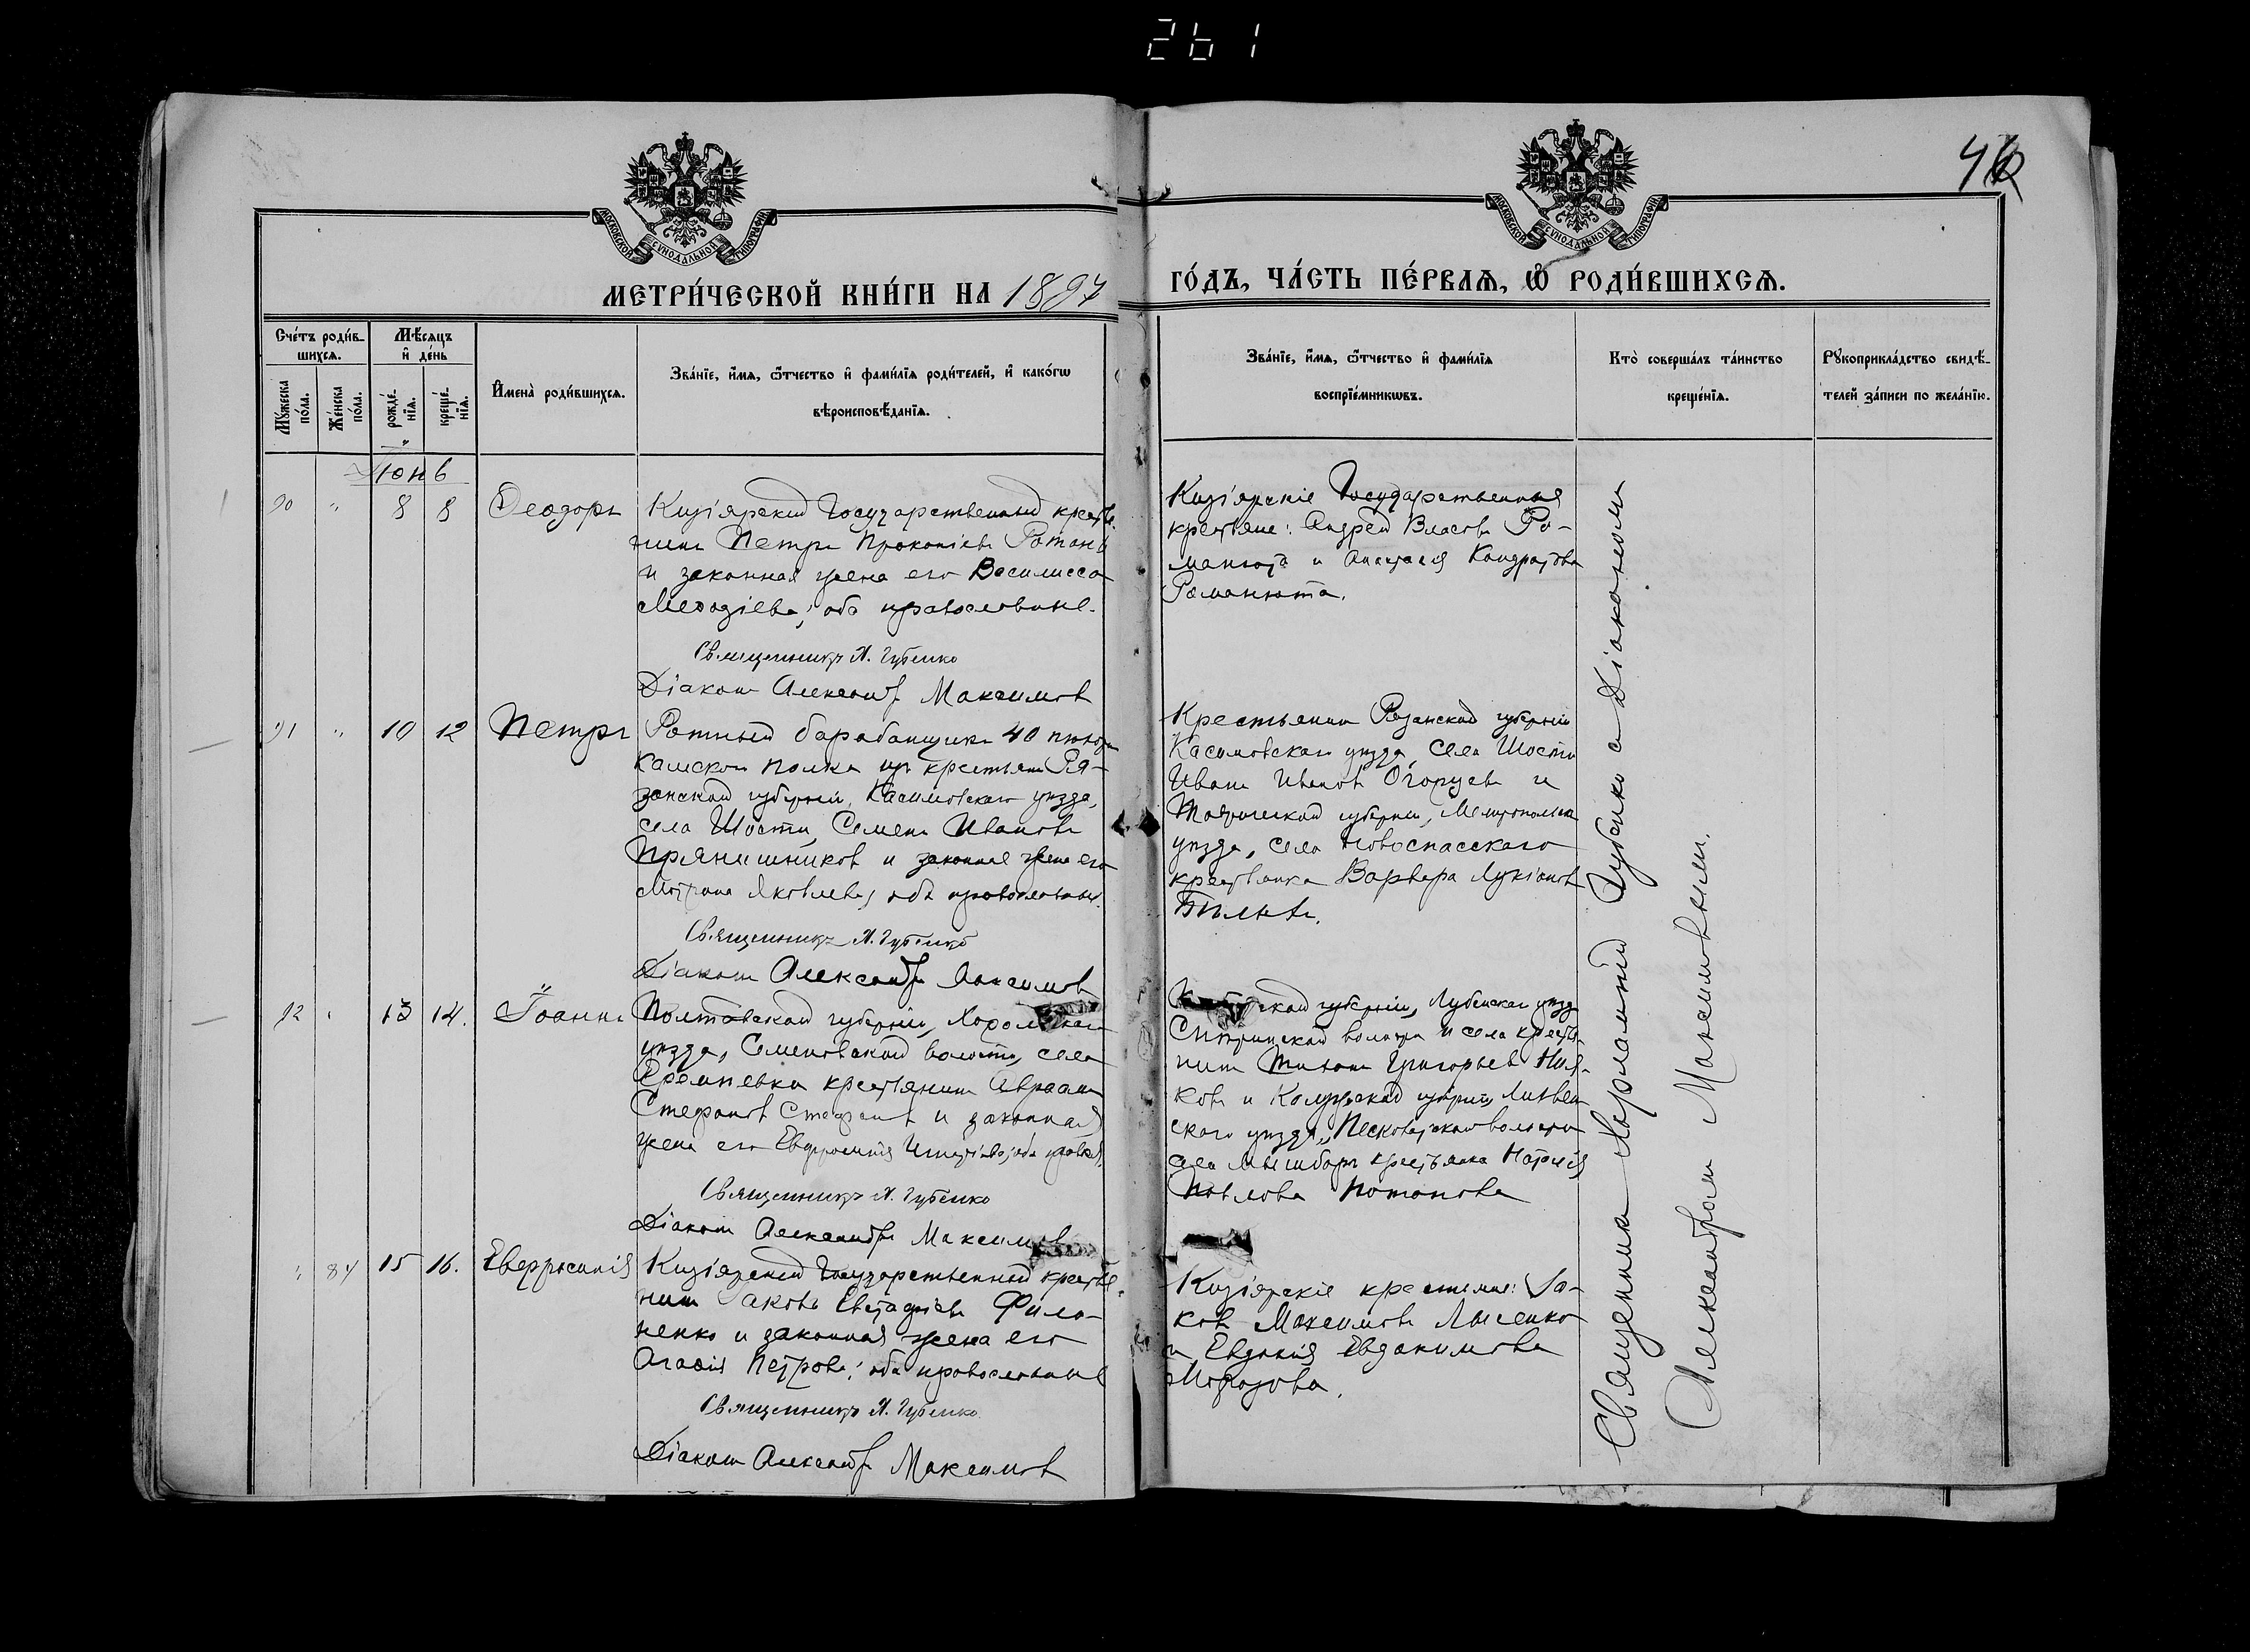 261
46
МОСКОВСКОЙ СѴНОДАЛЬНОЙ ТИПОГРАФІИ
МОСКОВСКОЙ СѴНОДАЛЬНОЙ ТИПОГРАФІИ
МЕТРИ́ЧЕСКОЙ КНИ́ГИ НА 1897 ГО́ДЪ, ЧА́СТЬ ПЕ́РВАѦ, Ѡ҆ РОДИ́ВШИХСѦ.
Сче́тъ роди́в-
шихсѧ.
Мꙋ́жеска
по́ла.
Же́нска
по́ла.
Мѣ́сѧцъ
и҆ де́нь
рожде́-
нїѧ.
креще́-
нїѧ.
И҆мена̀ роди́вшихсѧ.
Зва́нїе, и҆́мѧ, ѻ҆́тчество и҆ фами́лїѧ роди́телей, и҆ како́гѡ
вѣроисповѣ́данїѧ.
Зва́нїе, и҆́мѧ, ѻ҆́тчество и҆ фами́лїѧ
воспрїе́мникѡвъ.
Кто̀ соверша́лъ та́инство
креще́нїѧ.
Рꙋкоприкла́дство свидѣ́-
телей за́писи по жела́нїю.
Іюнь
90 " 8 8 Ѳеодоръ
Кизіярскій Государственный кресть-
нинъ Петръ Прокопіевъ Ротань
и законная жена его Василисса
Меѳодіева; оба православные.
Священникъ Х. Губенко
Діаконъ Александръ Максимовъ
Кизіярскіе Государственныя
крестьяне: Андрей Власовъ Ро-
манюта и Анастасія Кондратова
Романюта.
91 " 10 12 Петръ
Ротный барабанщикъ 40 пѣхот.
Камского полка изъ крестьянъ Ря-
занской губерніи, Касимовскаго уѣзда,
села Шости, Семенъ Ивановъ
Прянишниковъ и законная жена его
Матрона Яковлева, оба православные.
Священникъ Х. Губенко
Діаконъ Александръ Максимовъ
Крестьянинъ Рязанской губерніи
Касимовскаго уѣзда, села Шости
Иванъ Ивановъ Огорцевъ и
Таврической губерніи, Мелитопольск.
уѣзда, села Новоспасскаго
крестьянка Варвара Лукіанова
92 " 13 14. Іоаннъ
Полтавской губерніи, Хорольскаго
уѣзда, Семеновской волости, села
крестьянинъ Авраамъ
Стефановъ и законная
жена его Евфросинія оба правосл.
Священникъ Х. Губенко
Діаконъ Александръ Максимовъ
губерніи, Лубенскаго уѣзд.
волости и села кресть-
нинъ Григорьевъ
и Калужской губерніи, Лихвен-
скаго уѣзда, Песковатской волости
села крестьянка Наталія
Павлова Потапова
" 84 15 16. Евфросинія
Кизіярскій Государственный крестья-
нинъ Іаковъ Евстафіевъ Фило-
ненко и законная жена его
Агафія Петрова; оба православные
Священникъ Х. Губенко
Діаконъ Александръ Максимовъ
Кизіярскіе крестьяне: Іа-
ковъ Максимовъ Лысенко
и Евдокія Евдокимова
Морозова.
Священникъ Харлампій Губенко съ Діакономъ
Александромъ Максимовымъ.